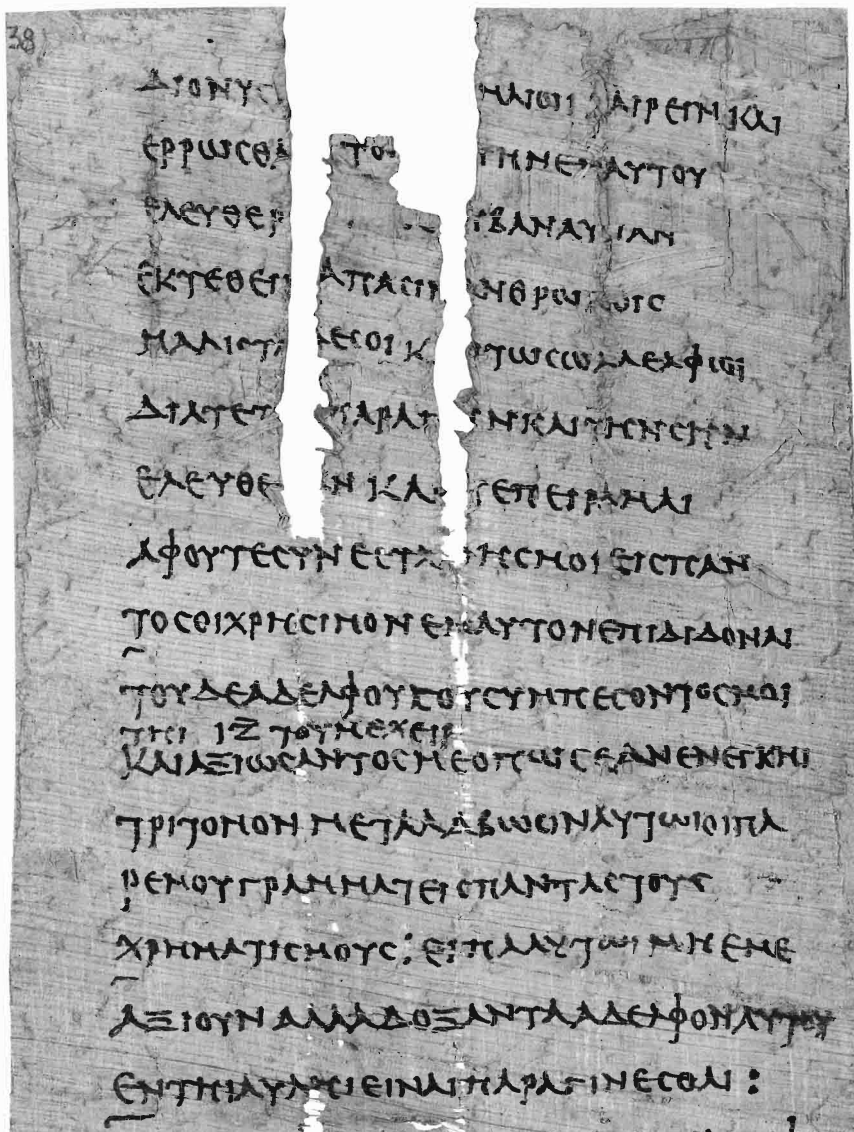 38
ΔΙΟΝΥΣ ΜΑΙΩΙ ΧΑΙΡΕΙΝ ΚΑΙ
ΕΡΡΩΣΘΑ ΤΟΙ ΤΗΝ ΕΜΑΥΤΟΥ
ΕΛΕΥΘΕΡ ΒΑΝΑΥΣΙΑΝ
ΕΚΤΕΘΕΙ ΑΠΑΣΙΝ ΑΝΘΡΩΠΟΙΣ
ΜΑΛΙΣΤΑ ΔΕ ΣΟΙ Κ ΤΩΣΩΙ ΑΔΕΛΦΩΙ
ΔΙΑ ΤΕ Τ ΣΑΡΑΠΙΝ ΚΑΙ ΤΗΝ ΣΗΝ
ΕΛΕΥΘΕ ΑΝ ΚΑΙ ΠΕΠΕΙΡΑΜΑΙ
ΑΦ ΟΥ ΤΕ ΣΥΝΕΣΤΑΘΗΣ ΜΟΙ ΕΙΣ ΠΑΝ
ΤΟ ΣΟΙ ΧΡΗΣΙΜΟΝ ΕΜΑΥΤΟΝ ΕΠΙΔΙΔΟΝΑΙ
ΤΟΥ ΔΕ ΑΔΕΛΦΟΥ ΣΟΥ ΣΥΜΠΕΣΟΝΤΟΣ ΜΟΙ
ΤΗΙ ΙΖ ΤΟΥ ΜΕΧΕΙΡ
ΚΑΙ ΑΞΙΩΣΑΝΤΟΣ ΜΕ ΟΠΩΣ ΕΑΝ ΕΝΕΓΚΗΙ
ΤΡΙΤΟΜΟΝ ΜΕΤΑΛΑΒΩΣΙΝ ΑΥΤΩΙ ΟΙ ΠΑ
Ρ ΕΜΟΥ ΓΡΑΜΜΑΤΕΙΣ ΠΑΝΤΑΣ ΤΟΥΣ
ΧΡΗΜΑΤΙΣΜΟΥΣ : ΕΙΠΑ ΑΥΤΩΙ ΜΗ ΕΜΕ
ΑΞΙΟΥΝ ΑΛΛΑ ΔΟΞΑΝΤΑ ΑΔΕΛΦΟΝ ΑΥΤΟΥ
ΕΝ ΤΗΙ ΑΥΛΗΙ ΕΙΝΑΙ ΠΑΡΑΓΙΝΕΣΘΑΙ :